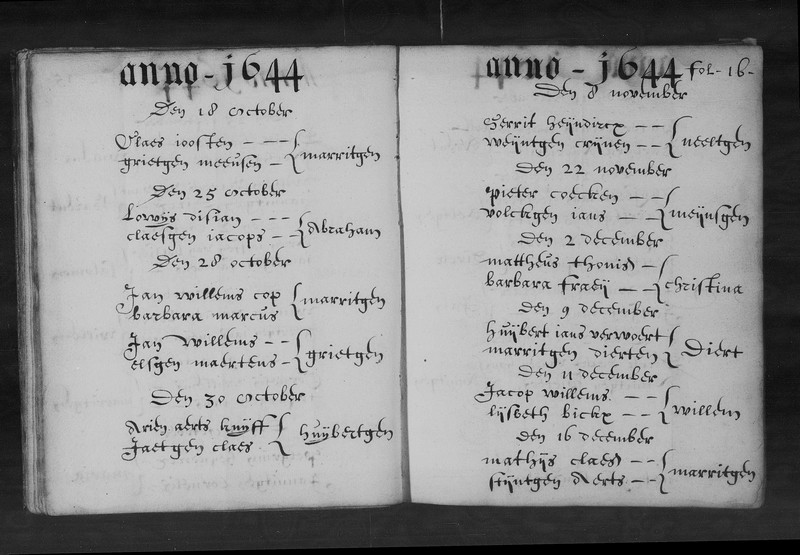 anno - 1644
Den 18 October
Claes joosten - - -
grietgen meeusen -
marritgen
Den 25 October
Lowijs disian - - -
claesgen jacops - -
Abraham
Den 28 october
Jan willems cop
barbara marcus
marritgen
Jan willems - -
elsgen maertens -
grietgen
Den 30 October
Arien aerts knijff
Jaetgen claes
huijbertgen
anno - 1644 fol - 16 -
Den 8 november
Gerrit heijndircx - -
weijntgen crijnen - -
neeltgen
Den 22 november
Pieter coecken - -
volckgen jans - -
meijnsgen
Den 2 december
mattheus thonis -
barbara fraeij - -
christina
Den 9 december
huijbert jans verwoert
marritgen dierten
Diert
Den 11 december
Jacop willems - -
lijsbeth bickx - -
willem
Den 16 december
mathijs claes - -
stijntgen Aerts - -
marritgen